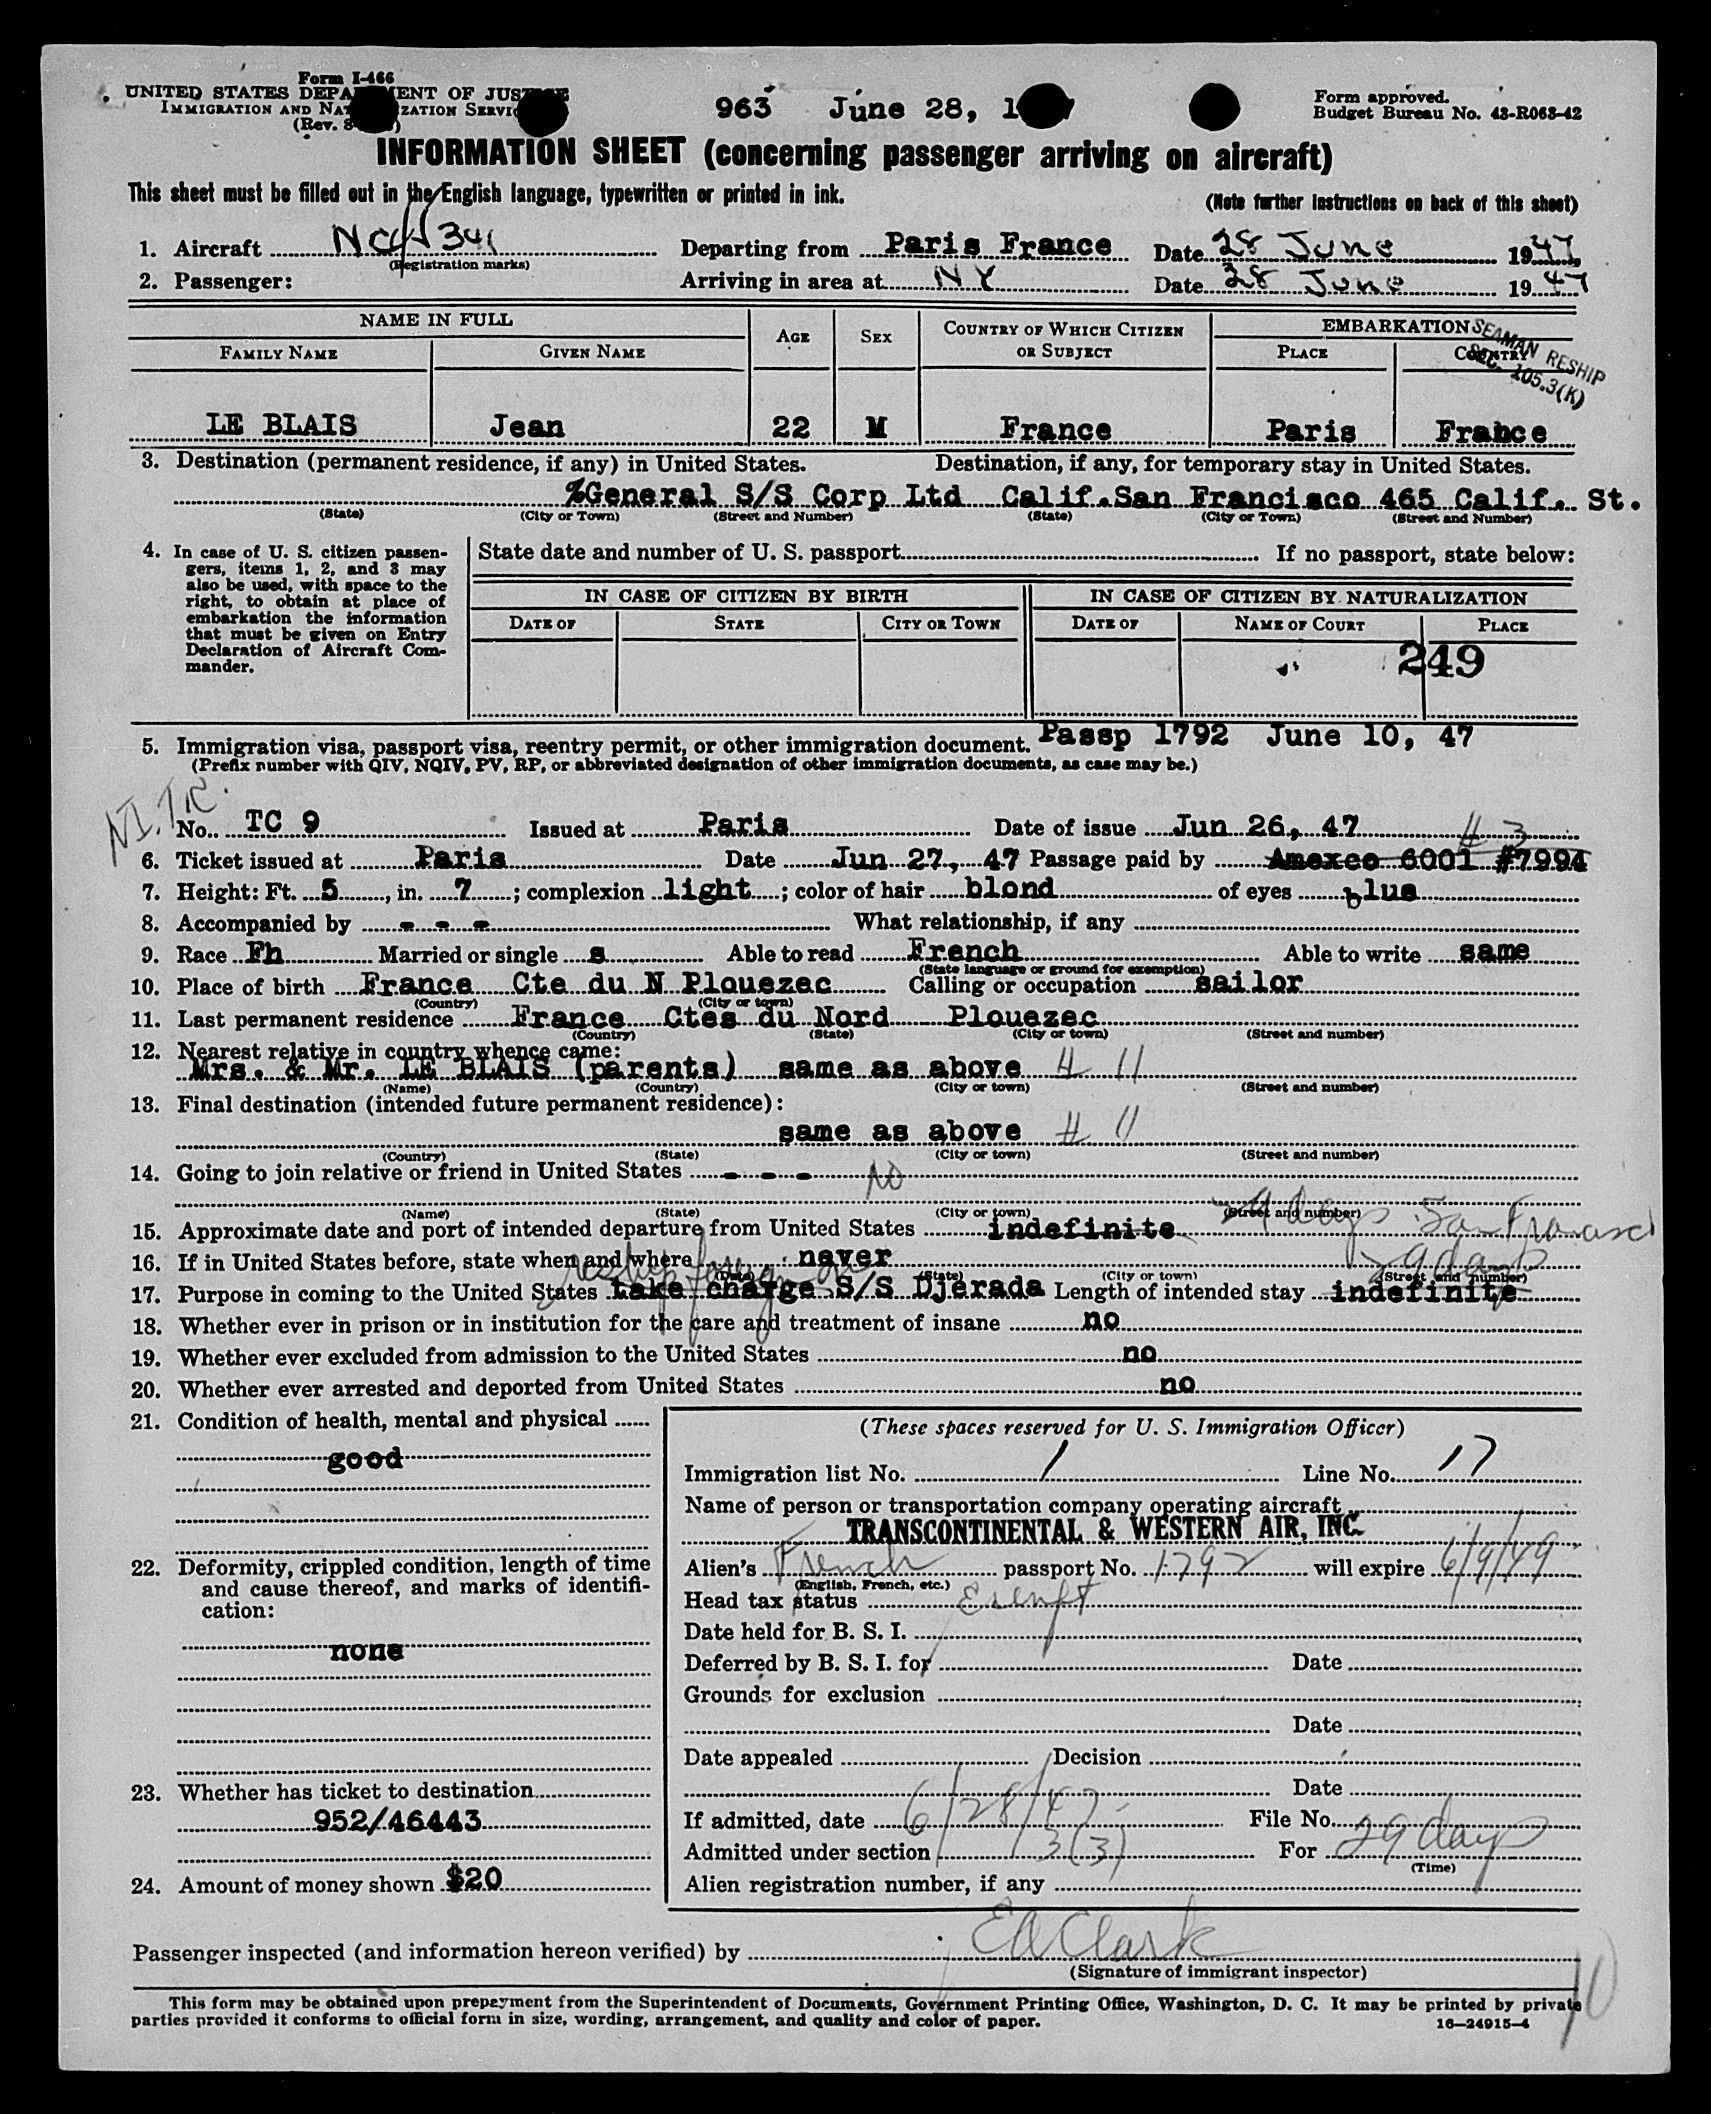 Form I-466
UNITED STATES DEPARTMENT OF JUSTICE
IMMIGRATION AND NATURALIZATION SERVICE
(Rev.
963 June 28,
Form approved.
Budget Bureau No. 43-R063-42
INFORMATION SHEET (concerning passenger arriving on aircraft)
This sheet must be filled out in the English language, typewritten or printed in ink.
(Note further instructions on back of this sheet)
1. Aircraft 341 Departing from Paris France Date 28 June 1947
(Registration marks)
2. Passenger: Arriving in area at NY Date 28 June 1947
NAME IN FULL AGE SEX COUNTRY OF WHICH CITIZEN OR SUBJECT EMBARKATION
FAMILY NAME GIVEN NAME PLACE COUNTRY
SEAMAN RESHIP
SEC. 105.3(K)
LE BLAIS Jean 22 M France Paris France
3. Destination (permanent residence, if any) in United States. Destination, if any, for temporary stay in United States.
%General S/S Corp Ltd Calif. San Francisco 465 Calif. St.
(State) (City or Town) (Street and Number) (State) (City or Town) (Street and Number)
4. In case of U. S. citizen passengers, items 1, 2, and 3 may also be used, with space to the right, to obtain at place of embarkation the information that must be given on Entry Declaration of Aircraft Commander.
State date and number of U. S. passport If no passport, state below:
IN CASE OF CITIZEN BY BIRTH IN CASE OF CITIZEN BY NATURALIZATION
DATE OF STATE CITY OR TOWN DATE OF NAME OF COURT PLACE
249
5. Immigration visa, passport visa, reentry permit, or other immigration document. Passp 1792 June 10, 47
(Prefix number with QIV, NQIV, PV, RP, or abbreviated designation of other immigration documents, as case may be.)
N.I.T.R.
No. TC 9 Issued at Paris Date of issue Jun 26, 47 # 3
6. Ticket issued at Paris Date Jun 27, 47 Passage paid by Amexco 6001 #7994
7. Height: Ft. 5, in. 7; complexion light; color of hair blond of eyes blue
8. Accompanied by - - - What relationship, if any
9. Race Fh Married or single s Able to read French Able to write same
(State language or ground for exemption)
10. Place of birth France Cte du N Plouezec Calling or occupation sailor
(Country) (City or town)
11. Last permanent residence France Ctes du Nord Plouezec
(Country) (State) (City or town) (Street and number)
12. Nearest relative in country whence came:
Mrs. & Mr. LE BLAIS (parents) same as above # 11
(Name) (Country) (City or town) (Street and number)
13. Final destination (intended future permanent residence):
same as above # 11
(Country) (State) (City or town) (Street and number)
14. Going to join relative or friend in United States - - - No
(Name) (State) (City or town) (Street and number)
15. Approximate date and port of intended departure from United States indefinite 29 days San Francisco
16. If in United States before, state when and where never 29 days
(Date) (State) (City or town) (Street and number)
reship foreign on
17. Purpose in coming to the United States take charge S/S Djerada Length of intended stay indefinite
18. Whether ever in prison or in institution for the care and treatment of insane no
19. Whether ever excluded from admission to the United States no
20. Whether ever arrested and deported from United States no
21. Condition of health, mental and physical
good
22. Deformity, crippled condition, length of time and cause thereof, and marks of identification:
none
23. Whether has ticket to destination
952/46443
24. Amount of money shown $20
(These spaces reserved for U. S. Immigration Officer)
Immigration list No. 1 Line No. 17
Name of person or transportation company operating aircraft
TRANSCONTINENTAL & WESTERN AIR, INC.
Alien's French passport No. 1792 will expire 6/9/49
(English, French, etc.)
Head tax status Exempt
Date held for B. S. I.
Deferred by B. S. I. for Date
Grounds for exclusion
Date
Date appealed Decision
Date
If admitted, date 6/28/47 File No.
Admitted under section 3(3) For 29 days
(Time)
Alien registration number, if any
Passenger inspected (and information hereon verified) by EA Clark
(Signature of immigrant inspector)
10
This form may be obtained upon prepayment from the Superintendent of Documents, Government Printing Office, Washington, D. C. It may be printed by private
parties provided it conforms to official form in size, wording, arrangement, and quality and color of paper.
16—24915-4